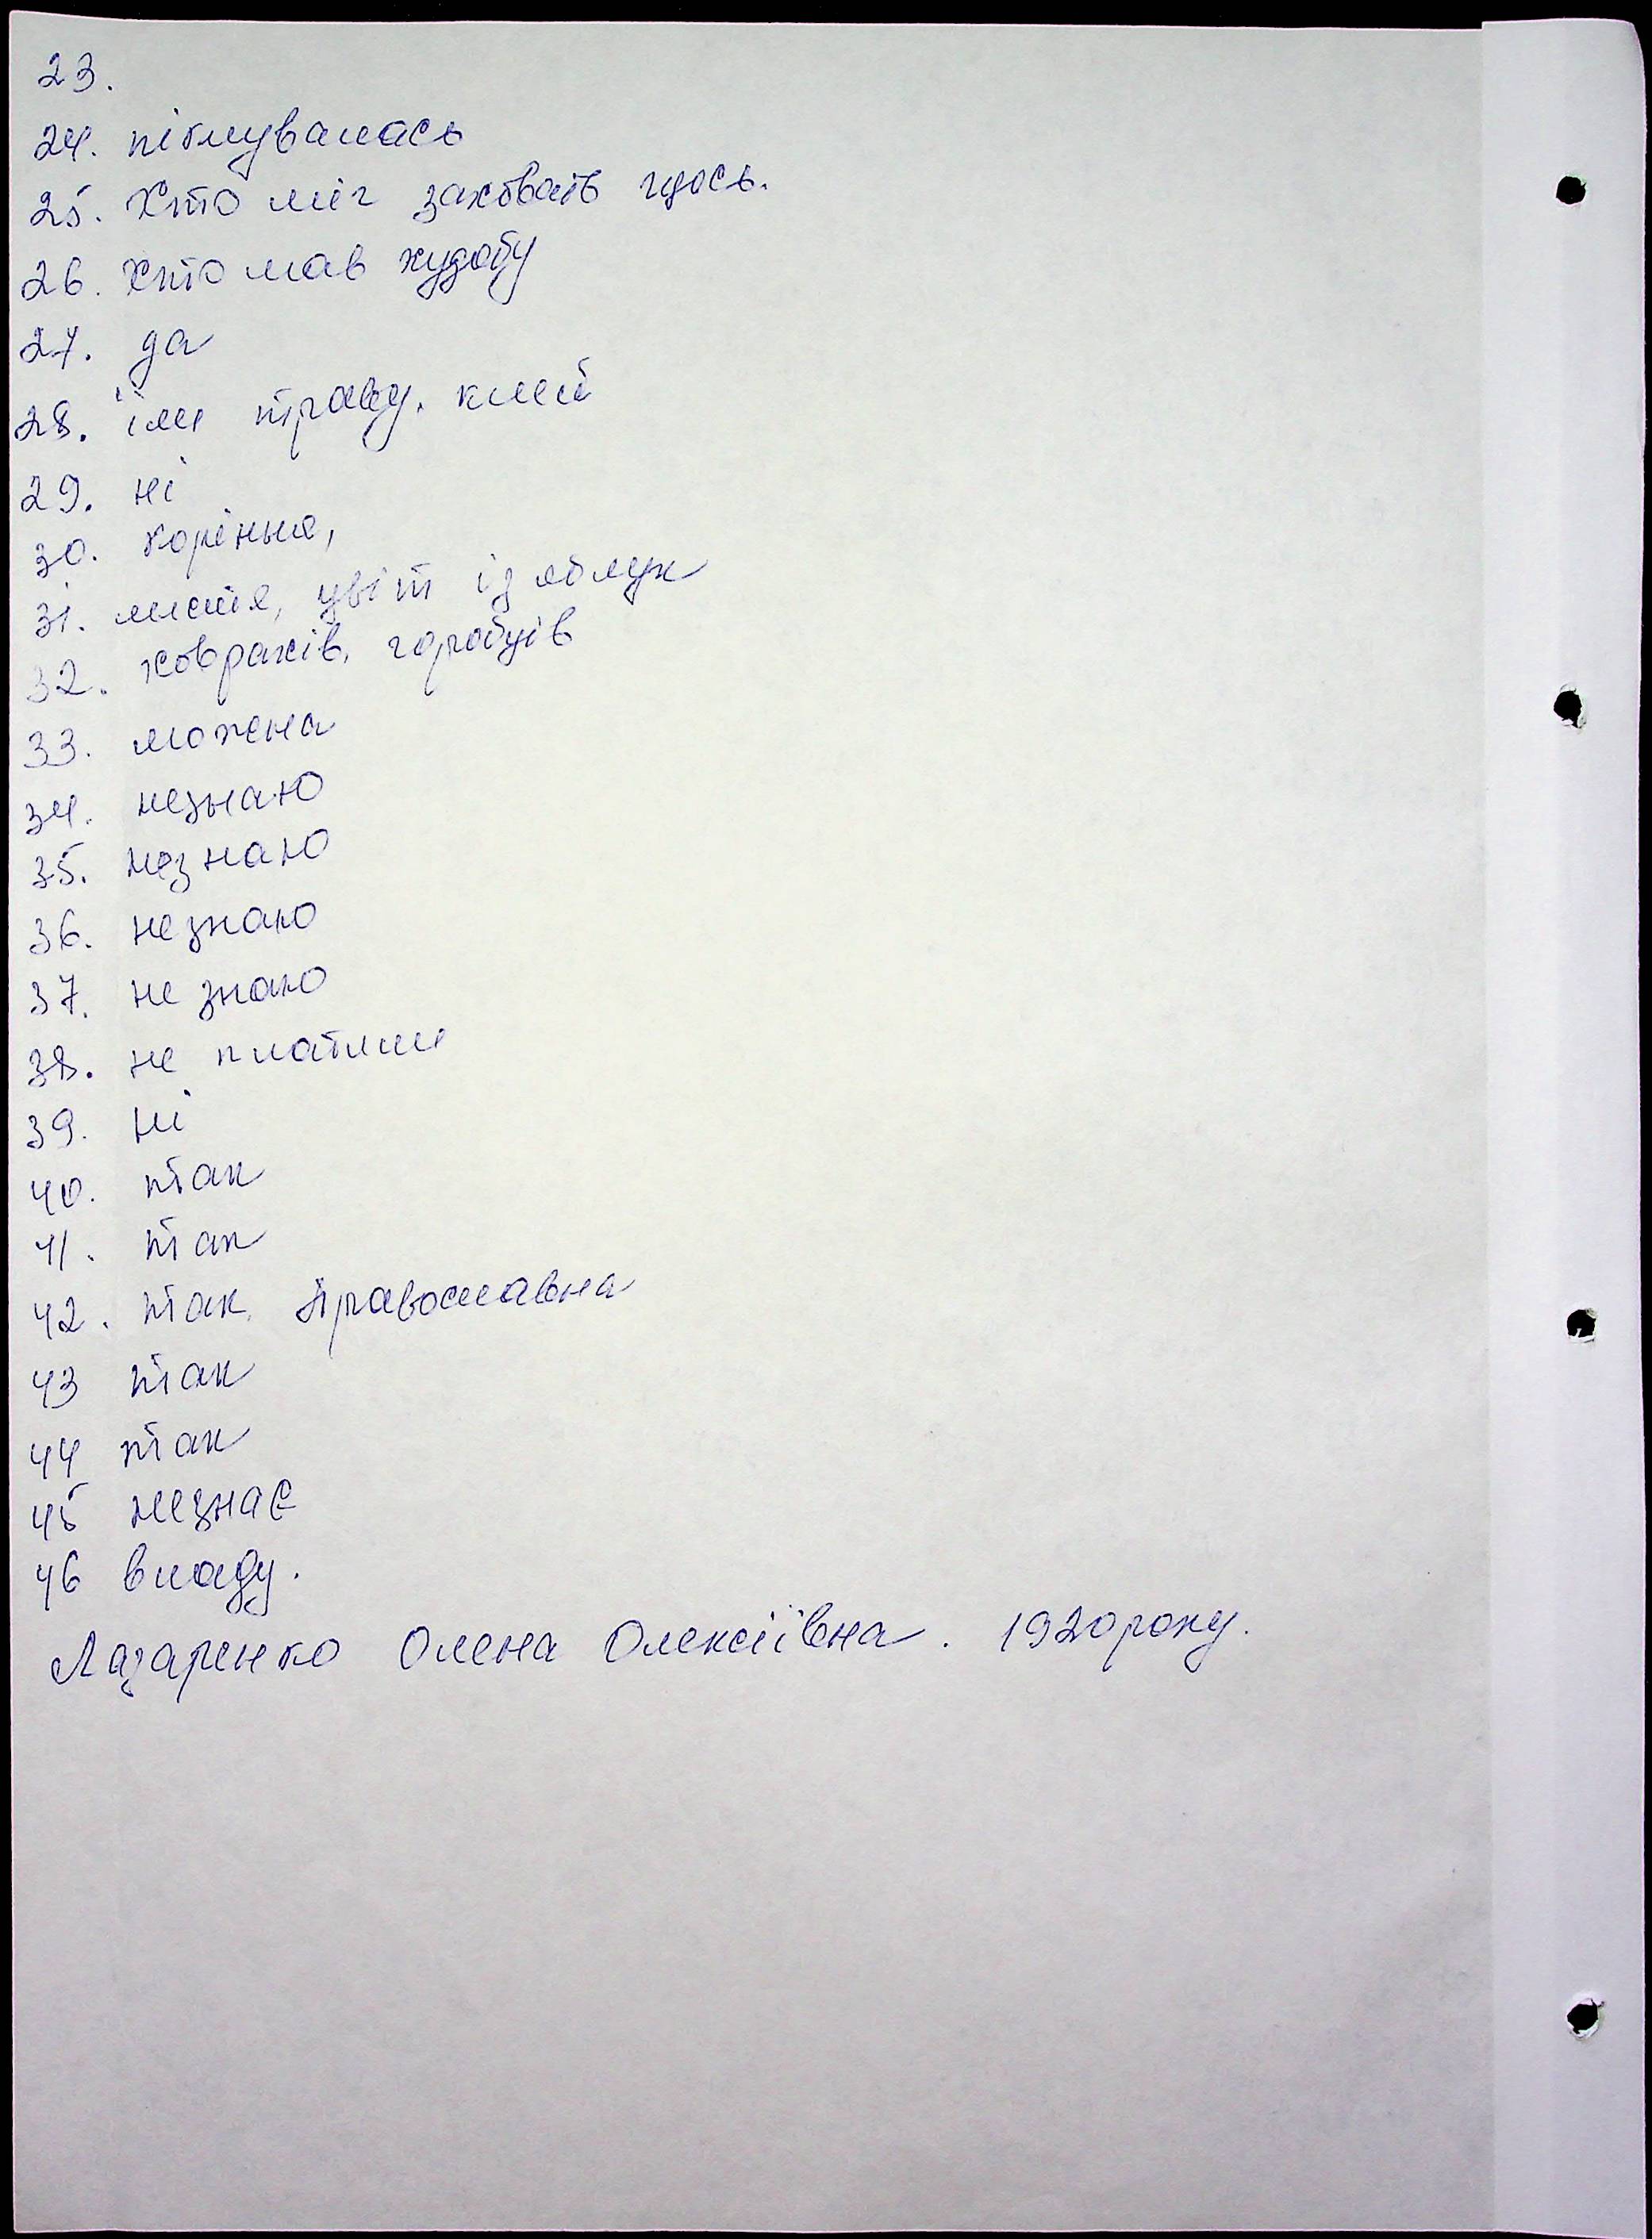 23.
24. піклувалась
25. Хто міг заховать щось.
26. Хто мав худобу
27. да
28. їли траву. клей
29. ні
30. коріння,
31. листя, цвіт із яблук
32. ховрахів, горобців
33. можна
34. незнаю
35. незнаю
36. незнаю
37. не знаю
38. не платили
39. ні
40. так
41. так
42. так. Православна
43 так
44 так
45 незнає
46 владу.
Лазаренко Олена Олексіївна. 1920 року.